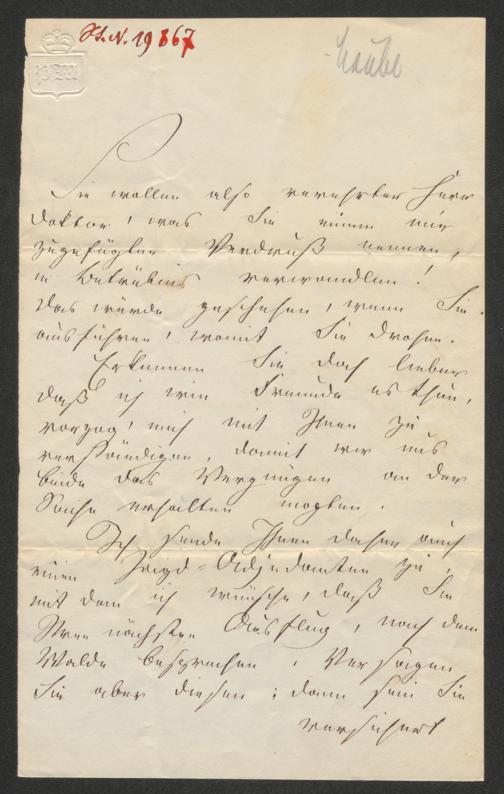 St. N. 19867
Laube
Sie wollen also verehrter Herr
Doktor, was Sie einen mir
zugefügten Verdruß nennen,
in Betrübnis verwandlen!
Das würde geschehen, wenn Sie
ausführen, womit Sie drohen.
Erkennen Sie doch lieber
daß ich wie Freunde es thun,
vorzog, mich mit Ihnen zu
verständigen, damit wir uns
beide das Vergnügen an der
Sache erhalten mögten.
Ich sende Ihnen daher auch
einen Jagd-Adjudanten zu,
mit dem ich wünsche, daß Sie
Ihren nächsten Ausflug, nach dem
Walde besprechen. Versagen
Sie aber diesen; dann sein Sie
versichert